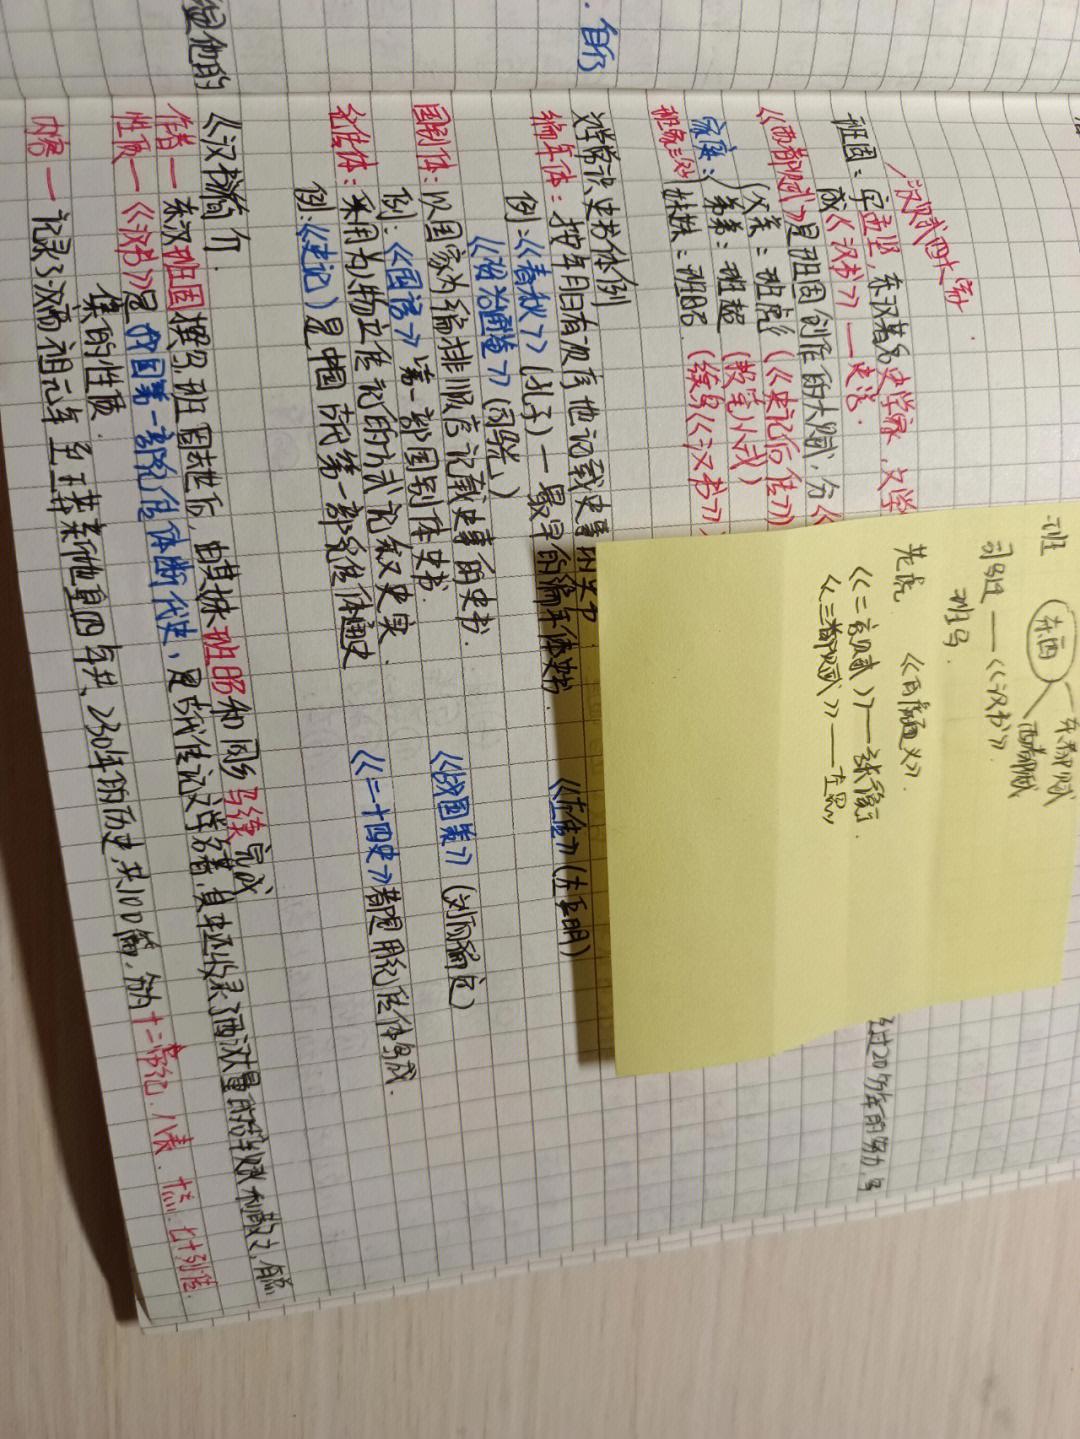 自行
是他的
汉赋四大家
班固：字孟坚，东汉著名史学家，文学
成《汉书》—史学
经过20多年的努力写
《两都赋》是班固创作的大赋，分《
家庭：父亲：班彪（《史记后传》）
弟弟：班超（投笔从戎）
班家三 妹妹：班昭（续写《汉书》）
文学常识史书体例
编年体：按年月日有次序地记载史事的史书
例：《春秋》（孔子）—最早的编年体史书. 《左传》（左丘明）
《资治通鉴》（司马光）
国别体：以国家为编排顺序记载史事的史书.
例：《国语》 第一部国别体史书. 《战国策》（刘向编订）
纪传体：采用为人物立传记的方式记叙史实.
例：《史记》是中国古代第一部纪传体通史 《二十四史》都是用纪传体写成.
《汉书》简介.
作者—东汉班固撰写，班固去世后，由其妹班昭和同乡马续完成
性质—《汉书》是我国第一部纪传体断代史，是古代传记文学名著，其中还收录了西汉大量的辞赋和散文，有总
集的性质.
内容—记录了汉高祖元年至王莽新地皇四年共230年的历史，共100篇，分为十二帝纪.八表.十志.七十列传.
班
东西
东都赋
西都赋
司马迁——《汉书》
班马.
先虎. 《白虎通义》.
《二京赋》——张衡.
《三都赋》——左思